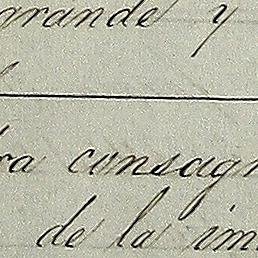 grande y
ra consagr
de la im